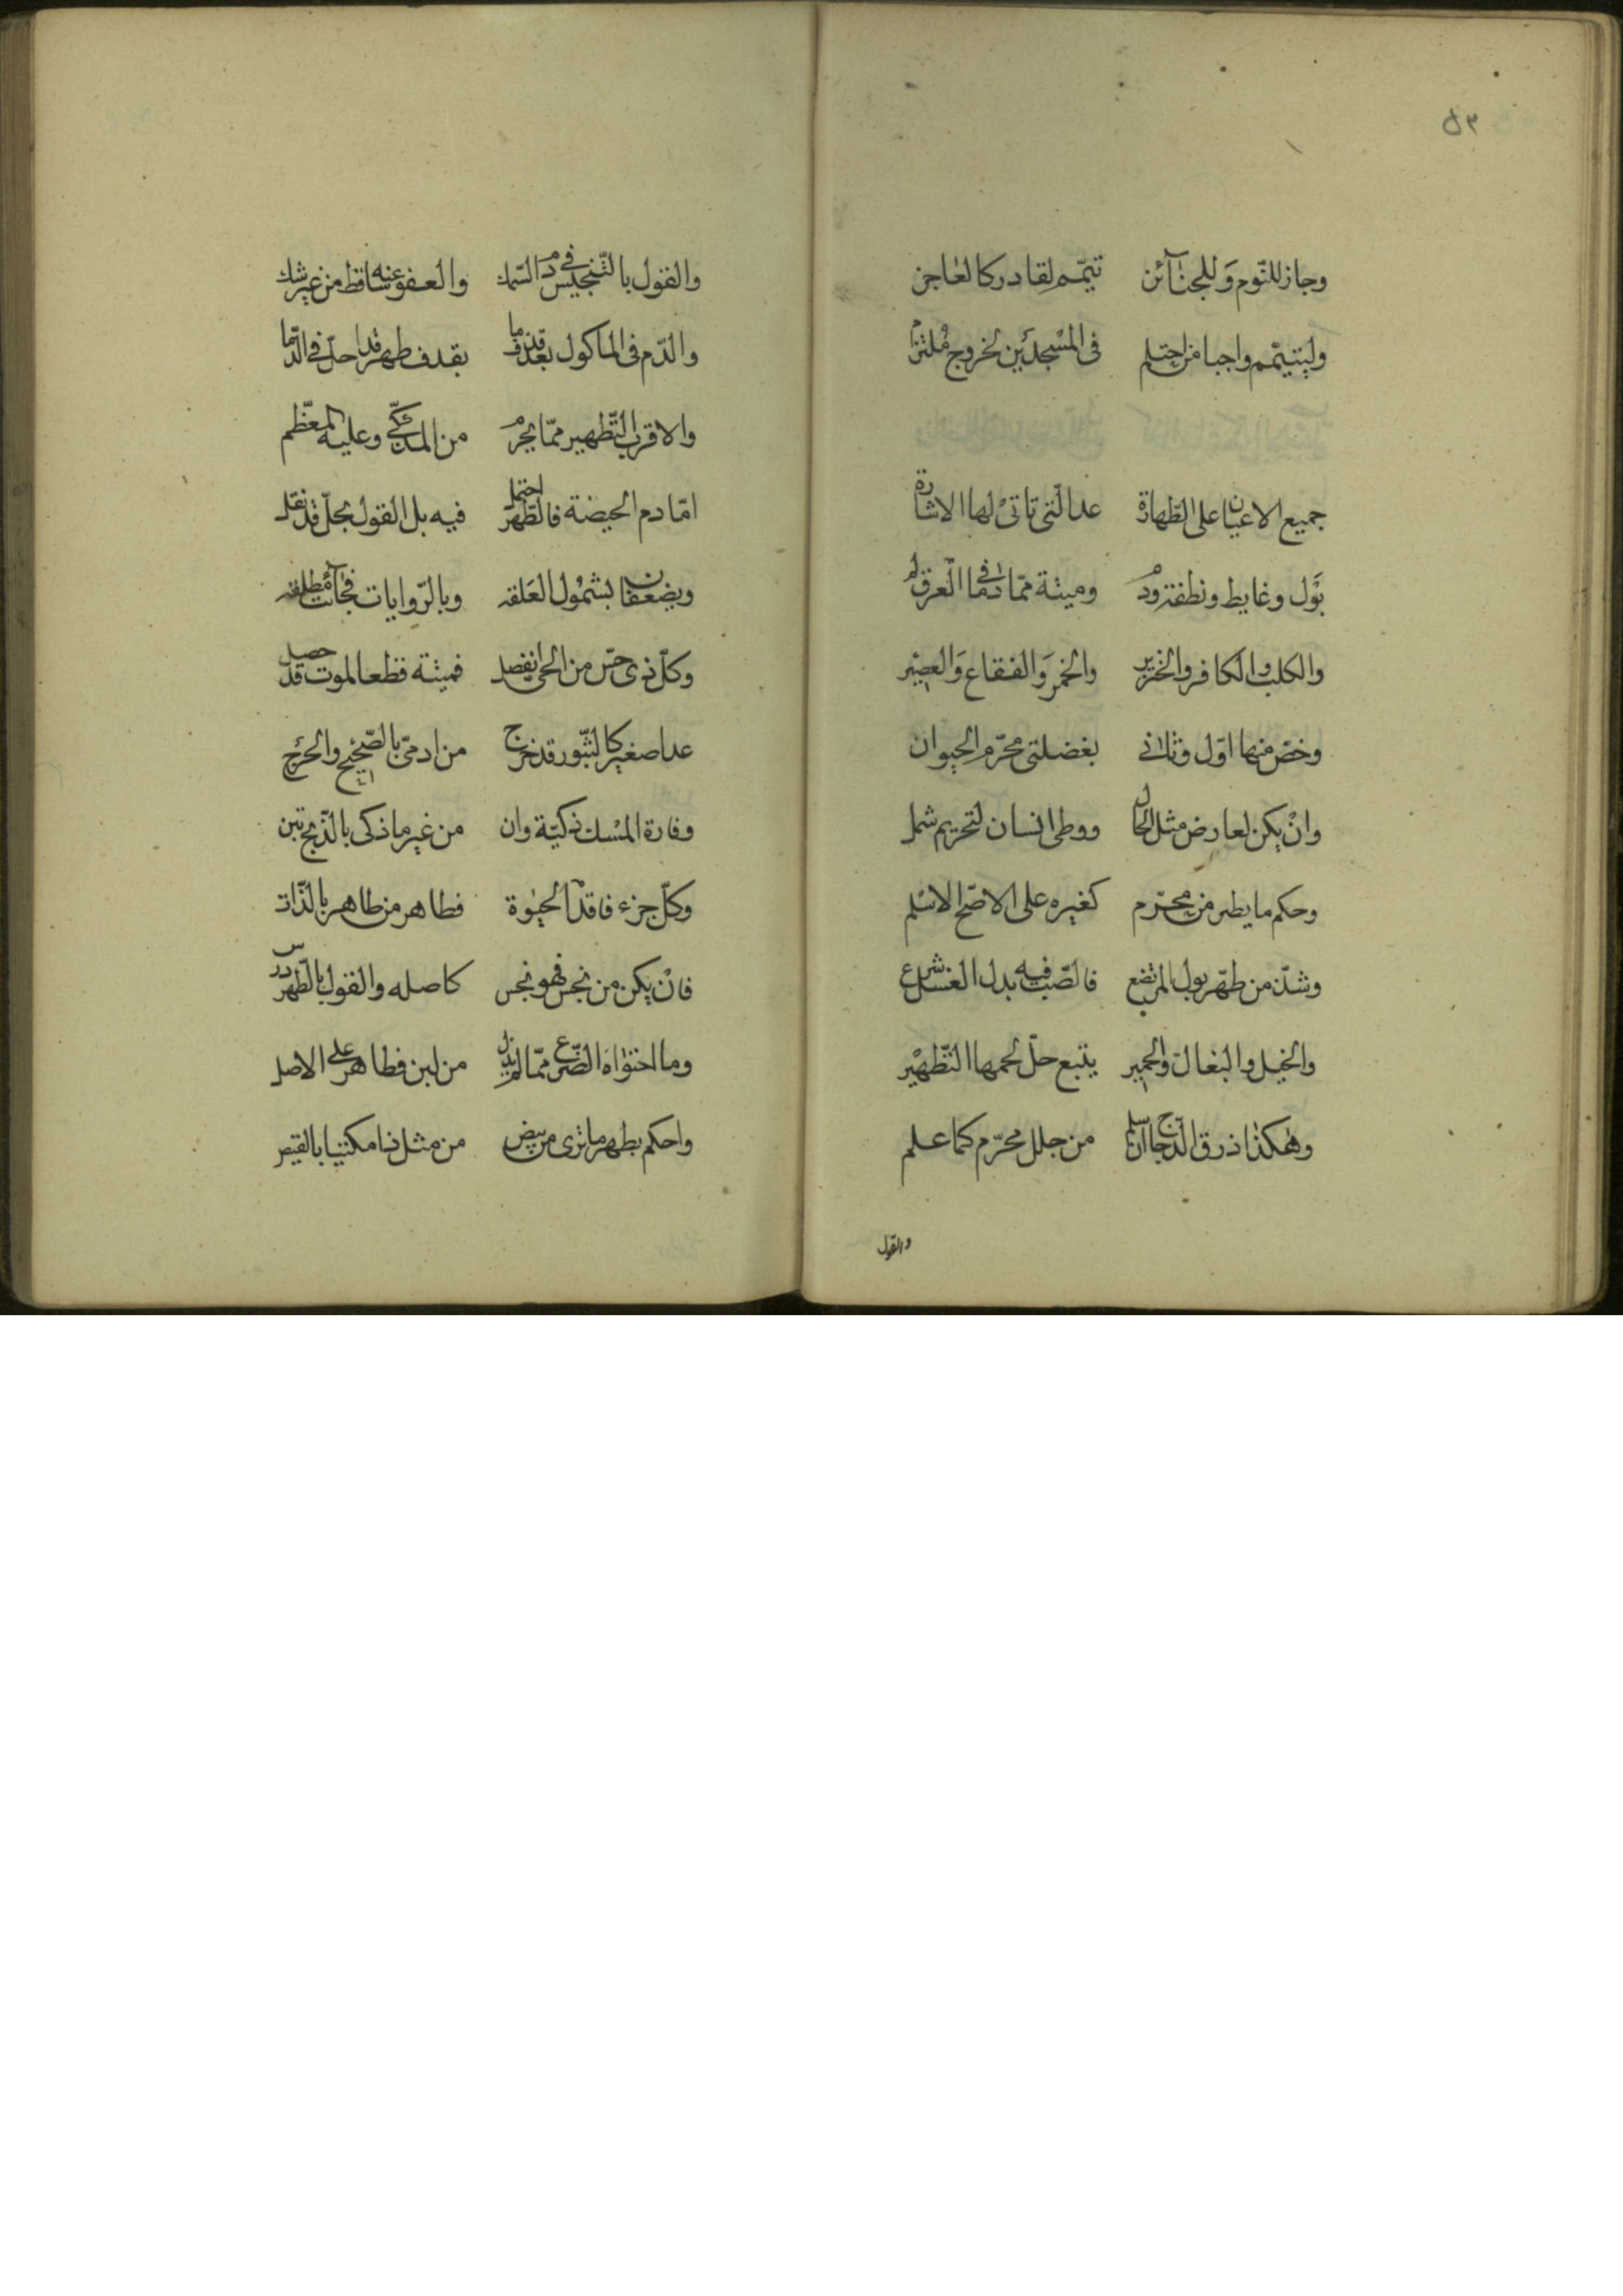 ٥٣
وجاز للنّوم وَللجنآئز تيمّم لقادر كالعاجز
وليتيمّم واجبا من احتلم في المسْجدَين لخروج مُلتزم
جميع الاعيان على الطّهارة عدا الّتي تاتيْ لها الاشارة
بَوْل وغايط ونطفة ودم وميتة ممّا دمًا في الْعرق
والكلب والكافر والخنزير والخمر وَالفقاع وَالعصيْر
وخصّ منها اوّل وثاني بفضلتى محرّم الحيوان
وانْ يكن لعارض مثل الجلل ووطى انسان لتحريم شمل
وحكم ما يطير من محرّم كغيره على الاصّح الاسْلم
وشذّ من طهّر بول المرتضع فالصّب فيه بدل الغسْل شرع
والخيل والبغال والحمير يتبع حلّ لحمها التّطهيْر
وهكذا ذرق الدّجاج ان سلم من جلل محرّم كما علم
والقول
والقول بالتّنجيس في دم السّمك والعفو عنه ساقط من غير شك
والدّم في الماكول بعد قذف ما يقذف طهر قد احلّ في الدّما
والاقرب التّطهير ممّا يحرم من المذكّى وعليه المعظّم
امّا دم الحيضة فالطّهر احتمل فيه بل القول بحلّ قد نقل
ويضعفان بشموْل العَلقه وبالرّوايات فجآئت مُطلقه
وكلّ ذى حسّ من الحىّ انفصل فميتة قطعا لموت قد حصل
عدا صغير كالبثّور قد خرج من ادمىّ بالصّحيح والحرج
وفارة المسْك ذكيّة وان من غير ما ذكى بالذّبح تبن
وكلّ جزء فاقد الحيٰوة فطاهر من طاهر بالذّات
فانْ يكن من نجس فهو نجس كاصله والقول بالطّهر درس
وما احتواه الضّرع ممّا لم يزل من لبن فطاهر على الاصل
واحكم بطهر ما ترى من بيض من مثل ذا مكتسيا بالقيض